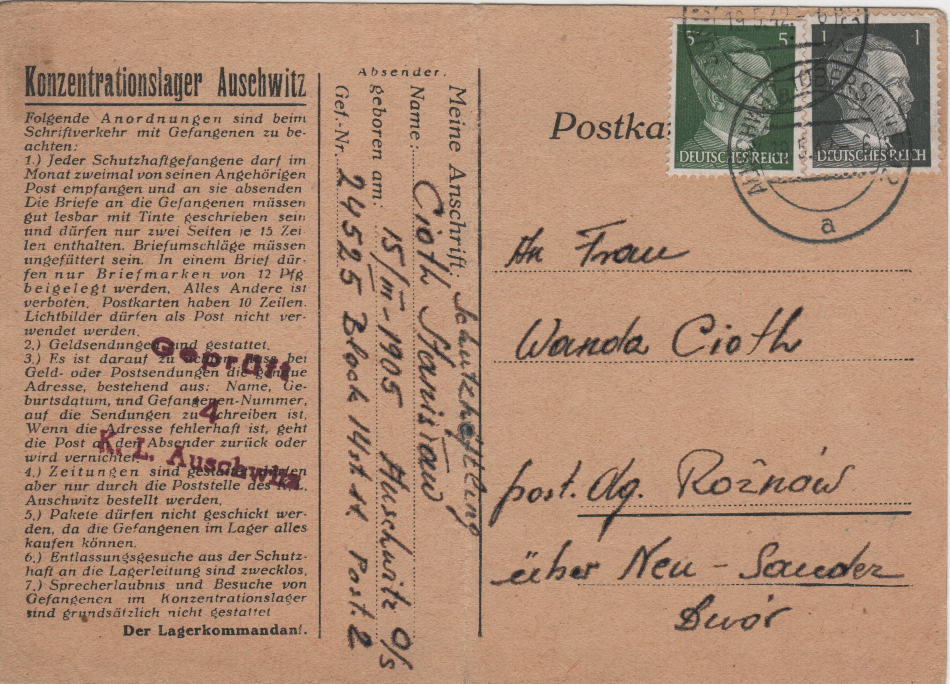 Konzentrationslager Auschwitz
Folgende Anordnungen sind beim
Schriftverkehr mit Gefangenen zu be-
achten:
1.) Jeder Schutzhaftgefangene darf im
Monat zweimal von seinen Angehörigen
Post empfangen und an sie absenden
Die Briefe an die Gefangenen müssen
gut lesbar mit Tinte geschrieben sein
und dürfen nur zwei Seiten je 15 Zei-
len enthalten. Briefumschläge müssen
ungefüttert sein. In einem Brief dür-
fen nur Briefmarken von 12 Pfg
beigelegt werden. Alles Andere ist
verboten. Postkarten haben 10 Zeilen.
Lichtbilder dürfen als Post nicht ver-
wendet werden.
2.) Geldsendungen sind gestattet.
3.) Es ist darauf zu achten, dass bei
Geld- oder Postsendungen die genaue
Adresse, bestehend aus: Name, Ge-
burtsdatum, und Gefangenen-Nummer,
auf die Sendungen zu schreiben ist.
Wenn die Adresse fehlerhaft ist, geht
die Post an den Absender zurück oder
wird vernichtet.
4.) Zeitungen sind gestattet, dürfen
aber nur durch die Poststelle des K.L.
Auschwitz bestellt werden.
5.) Pakete dürfen nicht geschickt wer-
den, da die Gefangenen im Lager alles
kaufen können.
6.) Entlassungsgesuche aus der Schutz-
haft an die Lagerleitung sind zwecklos.
7.) Sprecherlaubnis und Besuche von
Gefangenen im Konzentrationslager
sind grundsätzlich nicht gestattet
Der Lagerkommandant.
Geprüft
4
K.L. Auschwitz
Absender:
Meine Anschrift: Schutzhäftling
Name: Cioth Stanisław
geboren am: 15/III-1905 Auschwitz O/S
Gef.-Nr. 24525 Block 14 st 11 Post. 2
Postka
5 5
DEUTSCHES REICH
1 1
DEUTSCHES REICH
19.5.42
a
An Frau
Wanda Cioth
post. Ag. Rożnów
über Neu-Sandez
Dwór